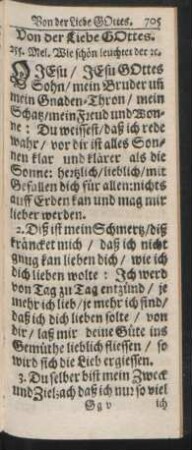 Von der Liebe GOttes. 705
Von der Liebe GOttes.
255. Mel. Wie schön leuchtet der ꝛc.
O JEsu / JEsu GOttes
Sohn / mein Bruder uñ
mein Gnaden-Thron / mein
Schatz / mein Freud und Won-
ne: Du weissest / daß ich rede
wahr / vor dir ist alles Son-
nen klar und klärer als die
Sonne: hertzlich / lieblich / mit
Gefallen dich für allen: nichts
auff Erden kan und mag mir
lieber werden.
2. Diß ist mein Schmertz / diß
kräncket mich / daß ich nicht
gnug kan lieben dich / wie ich
dich lieben wolte: Ich werd
von Tag zu Tag entzünd / je
mehr ich lieb / je mehr ich find /
daß ich dich lieben solte / von
dir / laß mir deine Güte ins
Gemüthe lieblich fliessen / so
wird sich die Lieb ergiessen.
3. Du selber bist mein Zweck
und Ziel; ach daß ich nur so viel
Gg v ich